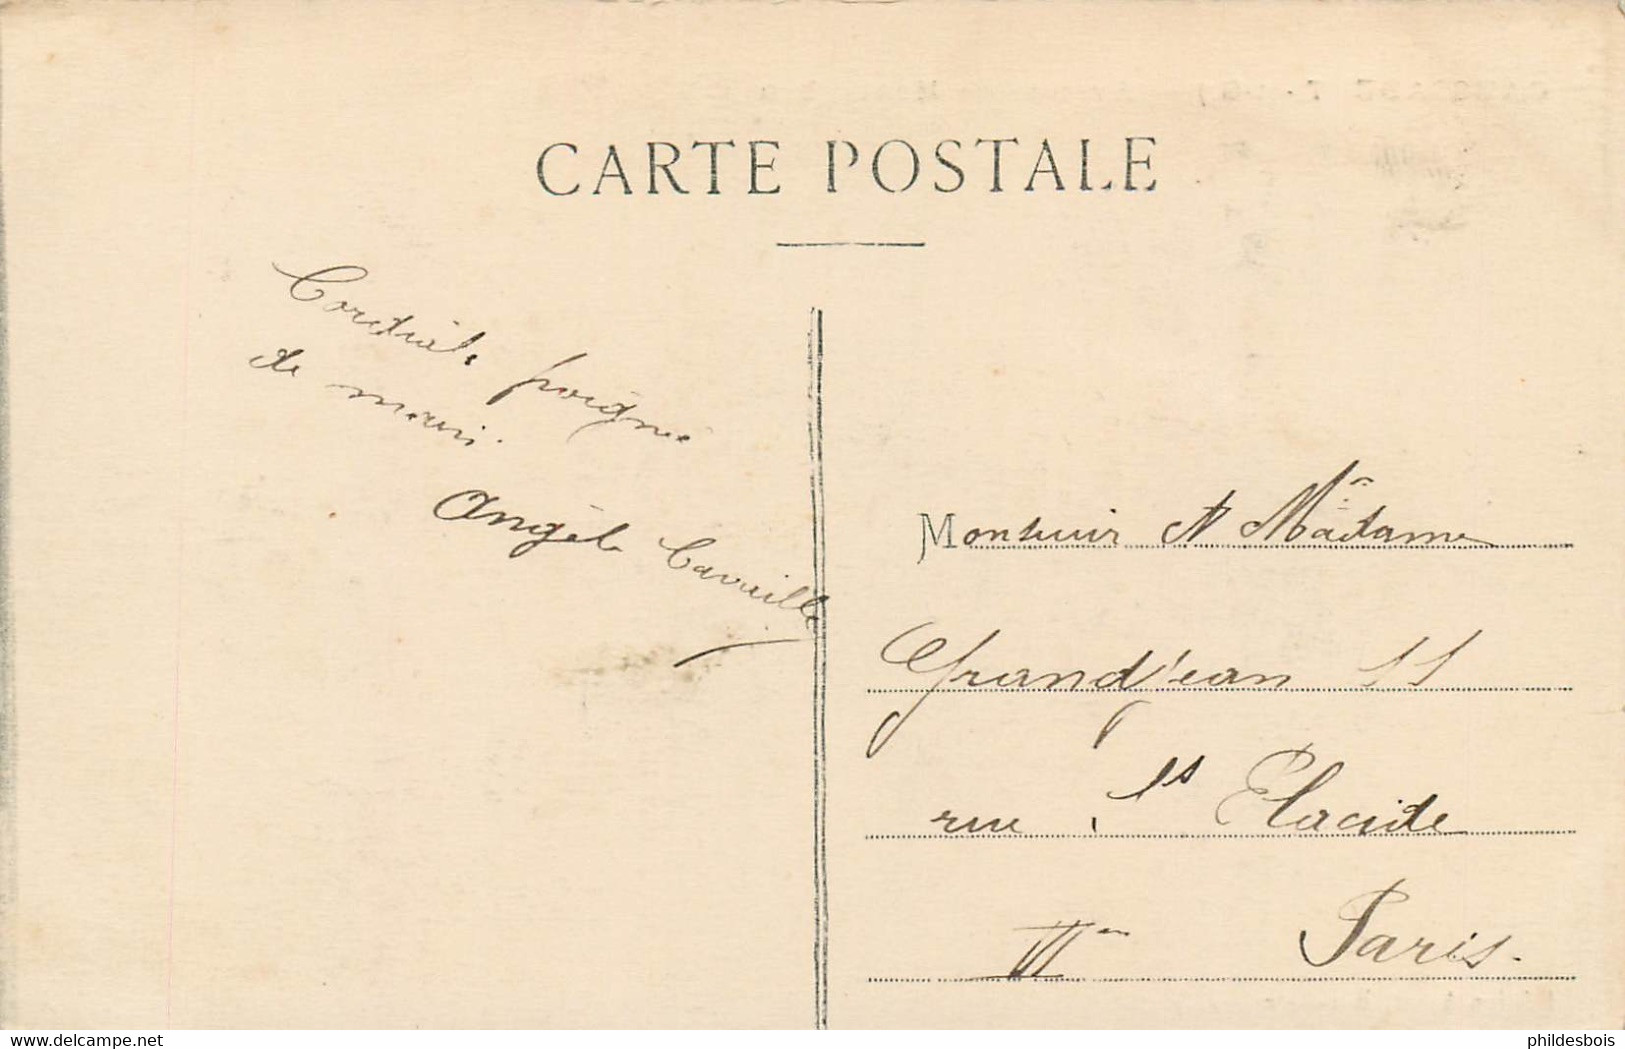 CARTE POSTALE
Cordiale poignée
de main.
Angèle Cavaillé
Monsieur et Madame
Grandjean 11
rue St Placide
VIe Paris.
delcampe.net
phildesbois